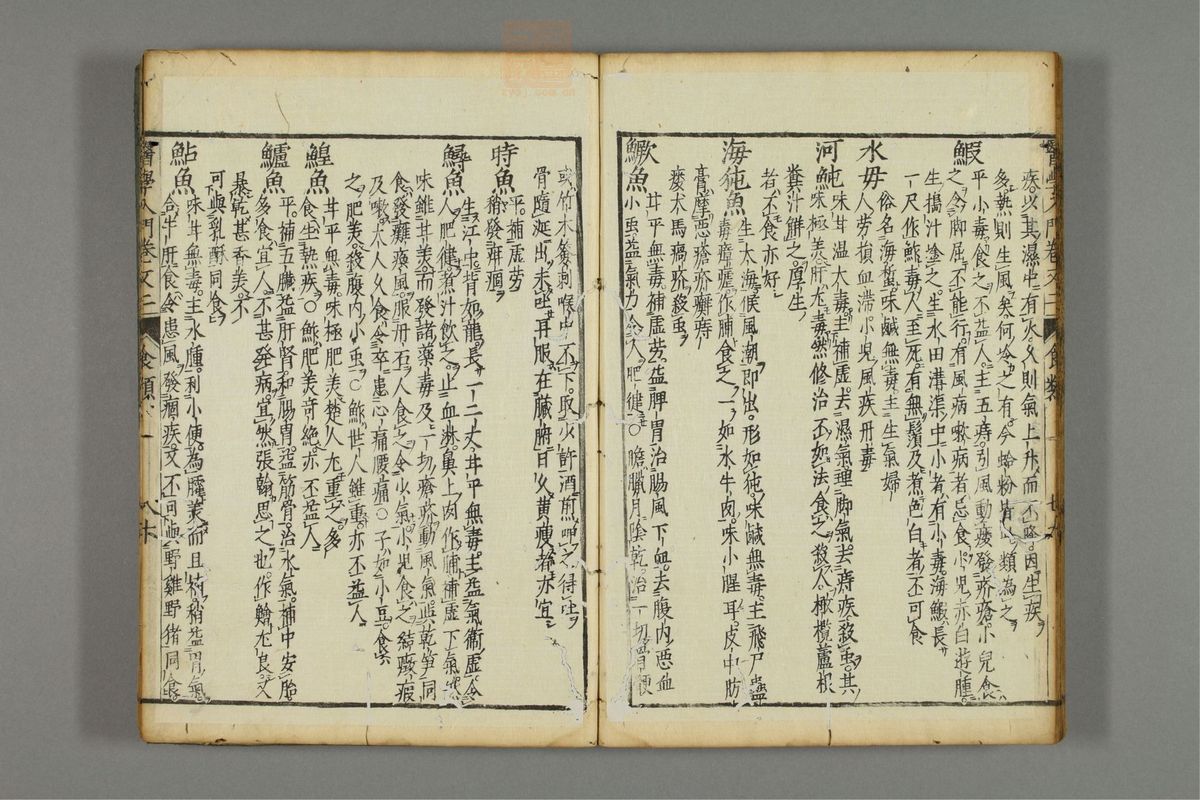 痰以其濕中有火久則氣上升而不降因生疾
多熱則生風矣何冷之有今蛤粉皆此類為之
鰕
平小毒食之不益人主五痔引風動痰發疥瘡小兒食
之令脚屈不能行有風病嗽病者忌食小兒赤白遊腫
生搗汁塗之生水田溝渠中小者有小毒海鰕長
一尺作鮓毒人至死有無鬚及煮色白者不可食
水母
俗名海蜇味鹹無毒主生氣婦
人勞損血滯小兒風疾丹毒
河魨
味甘溫大毒主補虛去濕氣理脚氣去痔疾殺蟲其
味極美肝尤毒然修治不如法食之殺人橄欖蘆根
糞汁解之厚生
者不食亦好
海㹠魚
生大海候風潮即出形如㹠味鹹無毒主飛尸蠱
毒瘴瘧作脯食之一如水牛肉味小腥耳皮中肪
膏摩惡瘡疥癬痔
瘻犬馬瘑疥殺蟲
鱖魚
甘平無毒補虛勞益脾胃治腸風下血去腹內惡血
小蟲益氣力令人肥健○膽臘月陰乾治一切骨鯁
或竹木簽刺喉中不下取少許酒煎呷之得吐
骨隨涎出未吐再服在臟腑日久黃瘦者亦宜
時魚
平補虛勞
稍發疳痼
鱘魚
生江中背如龍長一二丈甘平無毒主益氣補虛令
人肥健煮汁飲之止血淋鼻上肉作脯補虛下氣然
味雖甘美而發諸藥毒及一切瘡疥動風氣與乾笋同
食發癱瘓風服丹石人食之令少氣小兒食之結癥瘕
及嗽大人久食令卒患心痛腰痛○子如小豆食
之肥美殺腹內小蟲○鮓世人雖重亦不益人
鰉魚
甘平無毒味極肥美楚人尤重之多
食生熱疾○鮓肥美奇絕亦不益人
鱸魚
平補五臟益肝腎和腸胃益筋骨治水氣補中安胎
多食宜人不甚發病宜然張翰思之也作鱠尤良又
暴乾甚香美不
可與乳酪同食
鮎魚
味甘無毒主水腫利小便為臛美而且補稍益胃氣
合牛肝食令患風發痼疾又不可與野雞野猪同食
醫學入門卷之二
食類